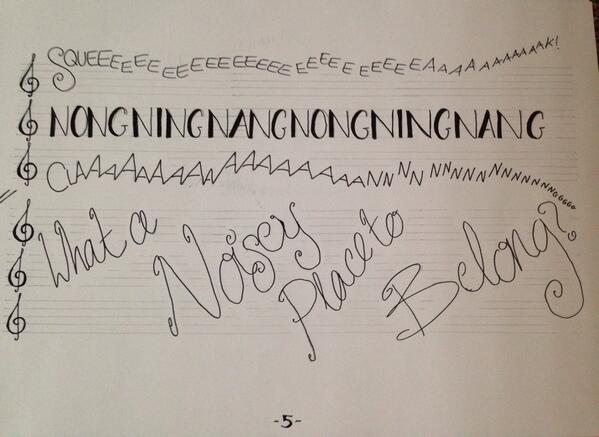 SQUEEEEEEEEEEEEEEEEEEEEEEEEEAAAAAAAAAAK!
NONGNINGNANGNONGNINGNANG
CLAAAAAAAAAAAAAAAAANNNNNNNNNNNNNNNGGGGG
What a Noisey Place to Belong?
-5-